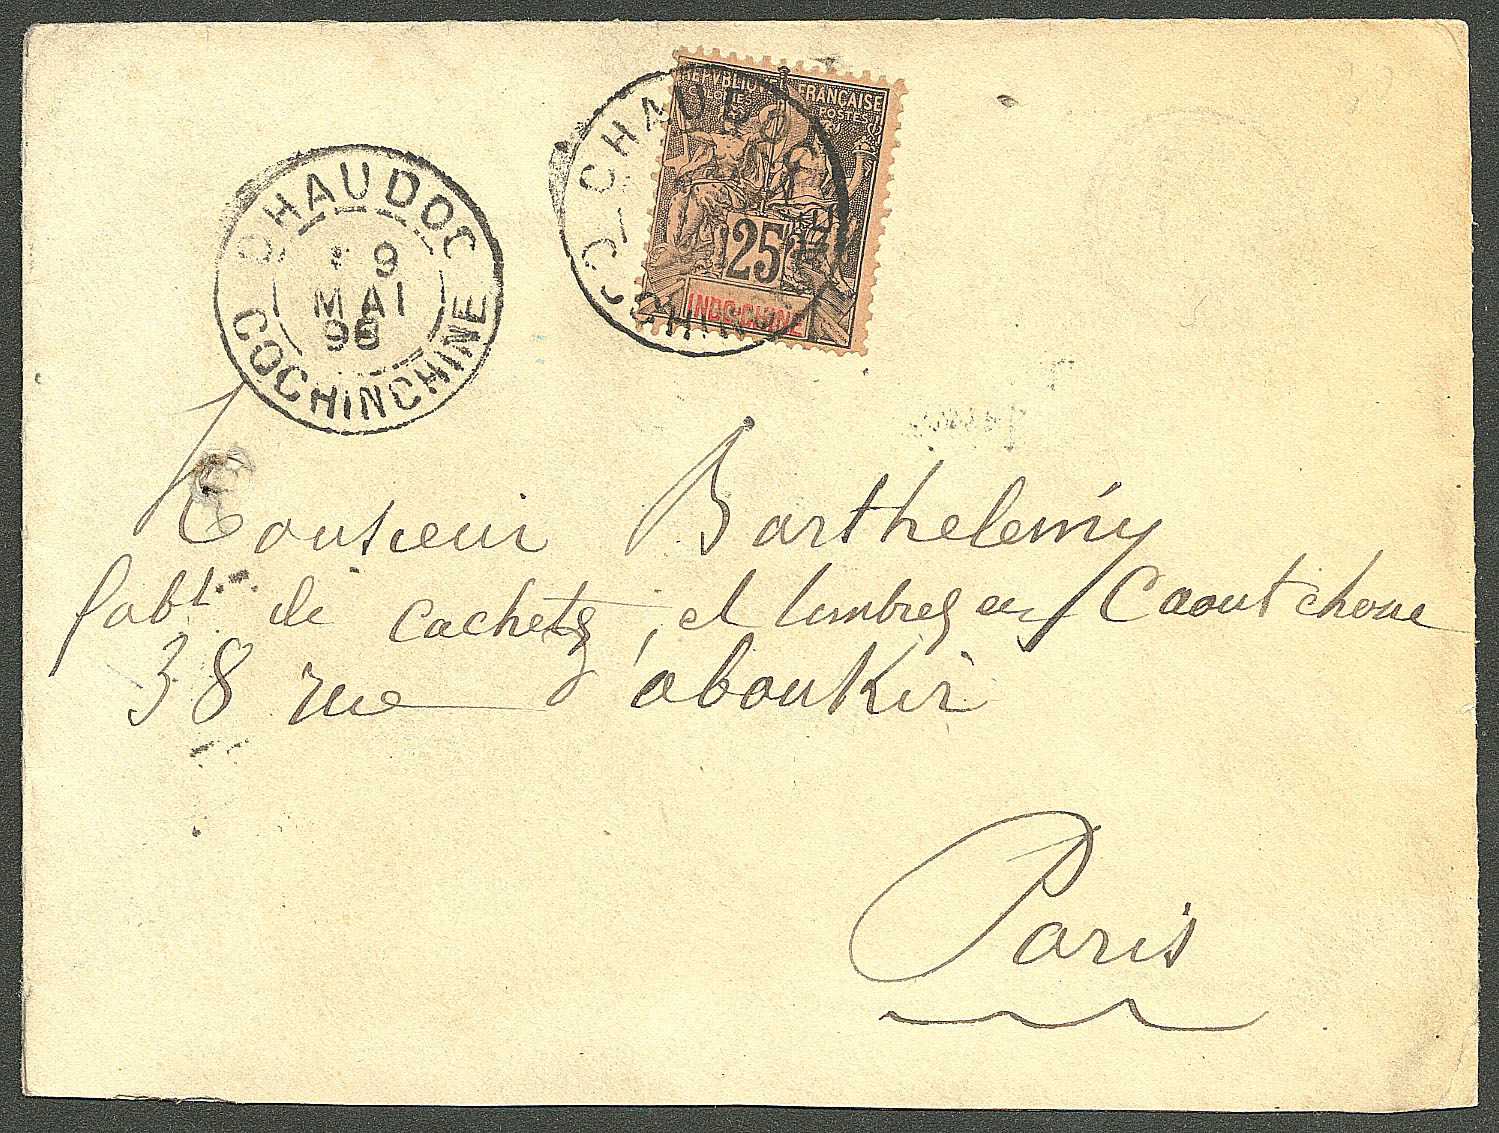 REPUBLIQUE FRANÇAISE
COLONIES POSTES
25
INDO-CHINE
CHAUDOC
CHAUDOC
9
MAI
98
COCHINCHINE
Monsieur Barthelemy
fabt. de cachets, et timbres en Caoutchouc
38 rue d'aboukir
Paris